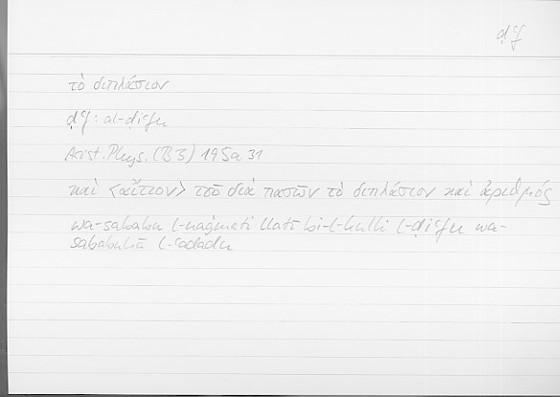 ḍʿf
τὸ διπλάσιον
ḍʿf: al-ḍiʿfu
Arist. Phys. (B3) 195a 31
καὶ <αἴτιον> τοῦ διὰ πασῶν τὸ διπλάσιον καὶ ἀριθμός
wa-sababu l-naġmati llatī bi-l-kulli l-ḍiʿfu wa-
sababuhā l-ʿadadu